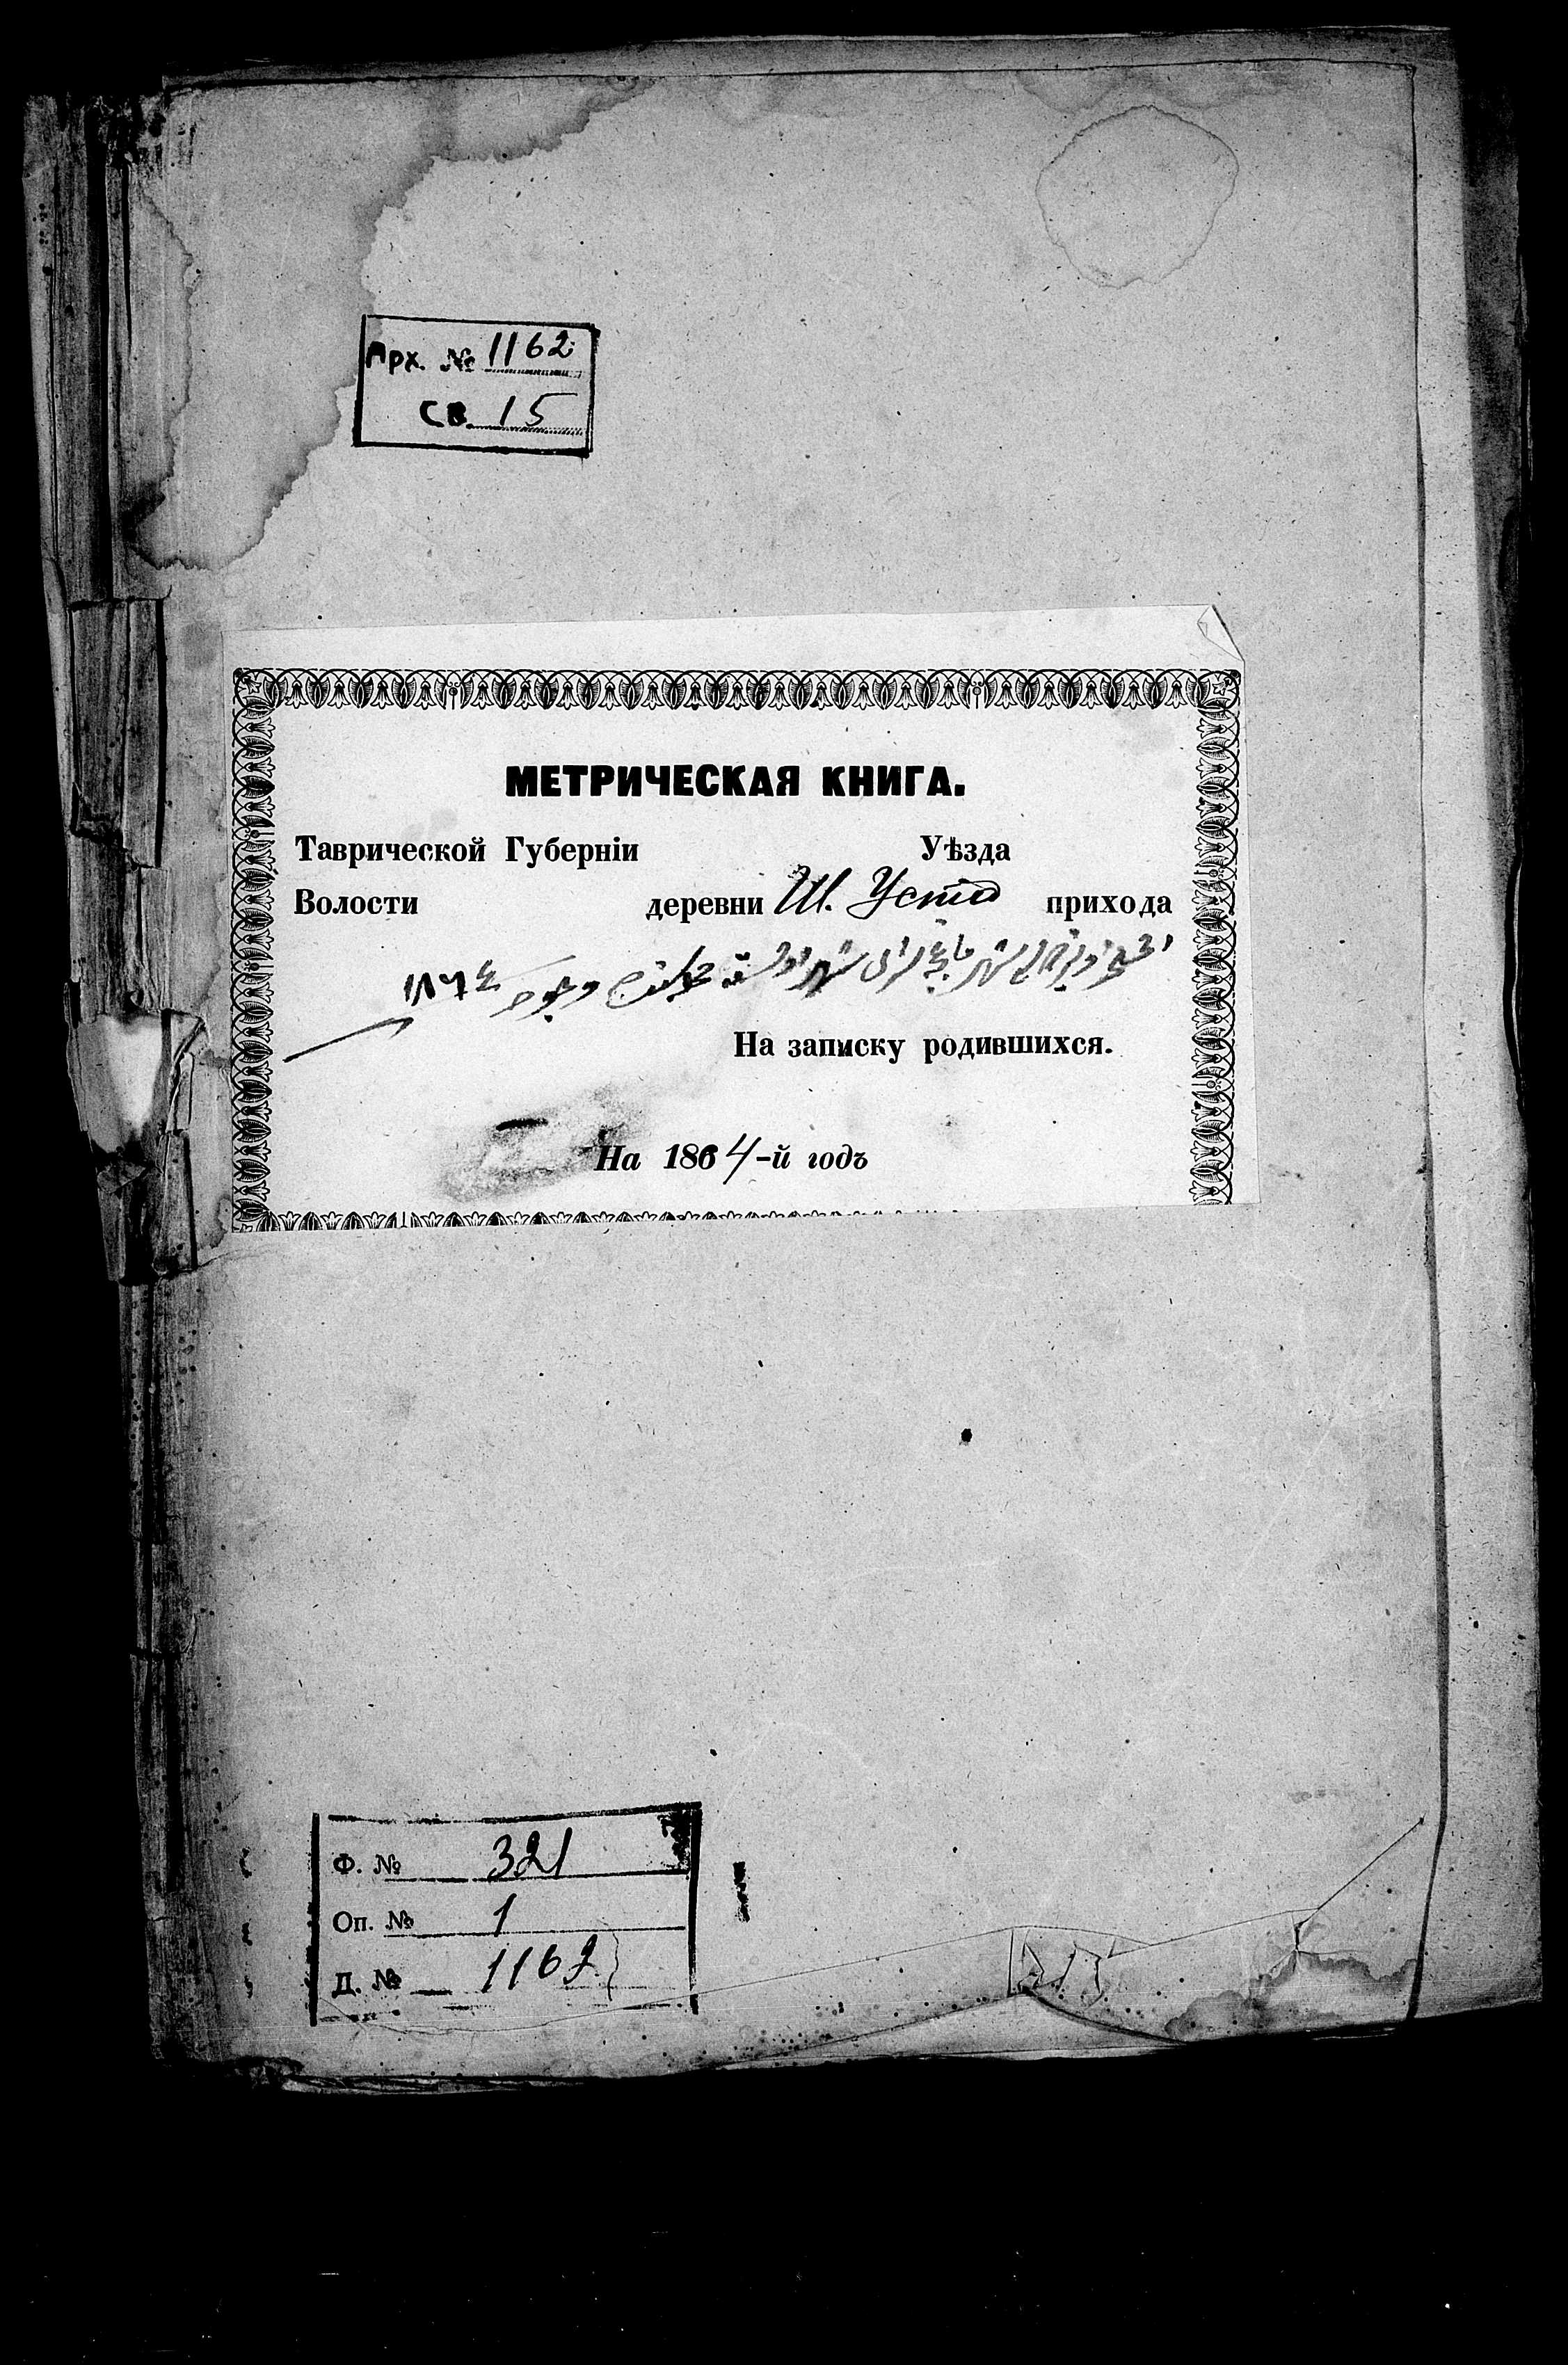 Арх. № 1162
св. 15
МЕТРИЧЕСКАЯ КНИГА.
Таврической Губерніи Уѣзда
Волости деревни Ш. Уста прихода
١٨٦٤
На записку родившихся.
На 1864-й годъ
Ф. № 321
Оп. № 1
Д. № 1162